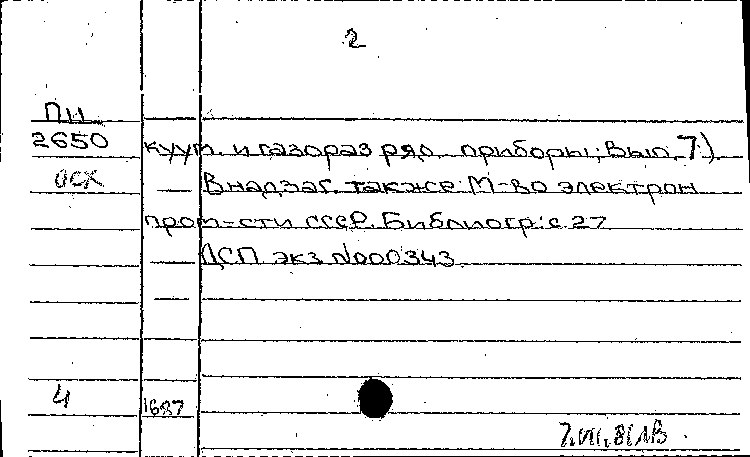 2
П11
2650
осх
куум. и газоразряд. приборы; Вып. 7)
— В надзаг. также: М-во электрон
пром-сти СССР. Библиогр.: с. 27
— ДСП экз. N000343.
4
1687
7.VII.81